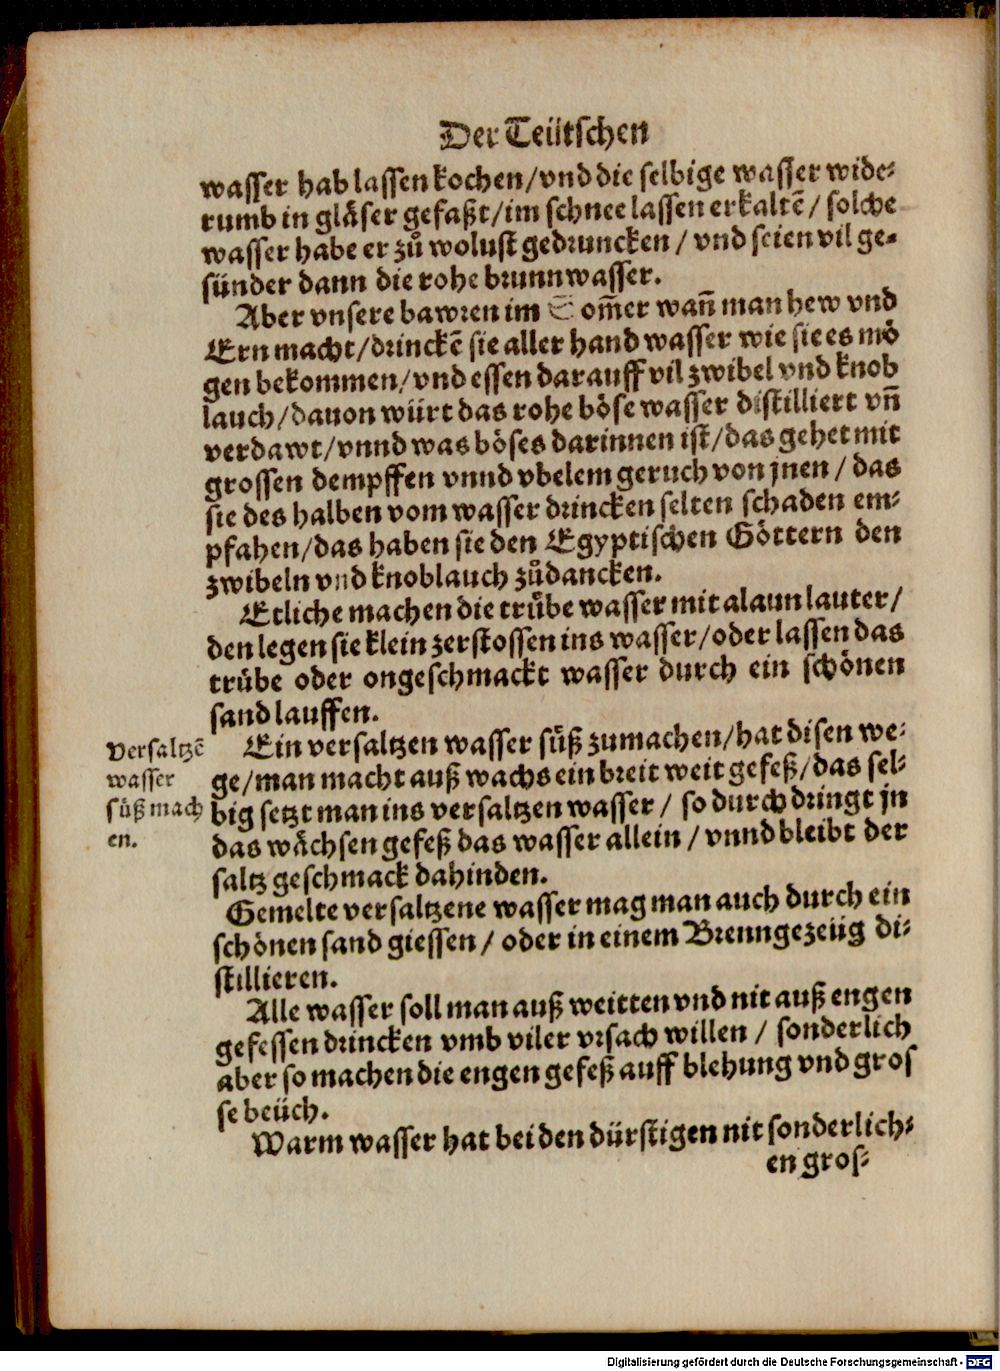 Der Teütschen
wasser hab lassen kochen/vnd die selbige wasser wide-
rumb in gläser gefaßt/im schnee lassen erkaltē/ solche
wasser habe er zů wolust gedruncken / vnd seien vil ge-
sünder dann die rohe brunnwasser.
Aber vnsere bawren im Som̄er wañ man hew vnd
Ern macht/drinckē sie aller hand wasser wie sie es mö
gen bekommen/vnd essen darauff vil zwibel vnd knob
lauch/dauon würt das rohe böse wasser distilliert vñ
verdawt/vnnd was böses darinnen ist/das gehet mit
grossen dempffen vnnd vbelem geruch von jnen / das
sie des halben vom wasser drincken selten schaden em-
pfahen/das haben sie den Egyptischen Göttern den
zwibeln vnd knoblauch zůdancken.
Etliche machen die trůbe wasser mit alaun lauter/
den legen sie klein zerstossen ins wasser/oder lassen das
trübe oder ongeschmackt wasser durch ein schönen
sand lauffen.
Versaltzē
wasser
süß mach
en.
Ein versaltzen wasser süß zumachen/hat disen we-
ge/man macht auß wachs ein breit weit gefeß/das sel-
big setzt man ins versaltzen wasser / so durch dringt jn
das wächsen gefeß das wasser allein / vnnd bleibt der
saltz geschmack dahinden.
Gemelte versaltzene wasser mag man auch durch ein
schönen sand giessen / oder in einem Brenngezeüg di-
stillieren.
Alle wasser soll man auß weitten vnd nit auß engen
gefessen drincken vmb viler vrsach willen / sonderlich
aber so machen die engen gefeß auff blehung vnd gros
se beüch.
Warm wasser hat bei den dürstigen nit sonderlich-
en gros-
Digitalisierung gefördert durch die Deutsche Forschungsgemeinschaft - DFG